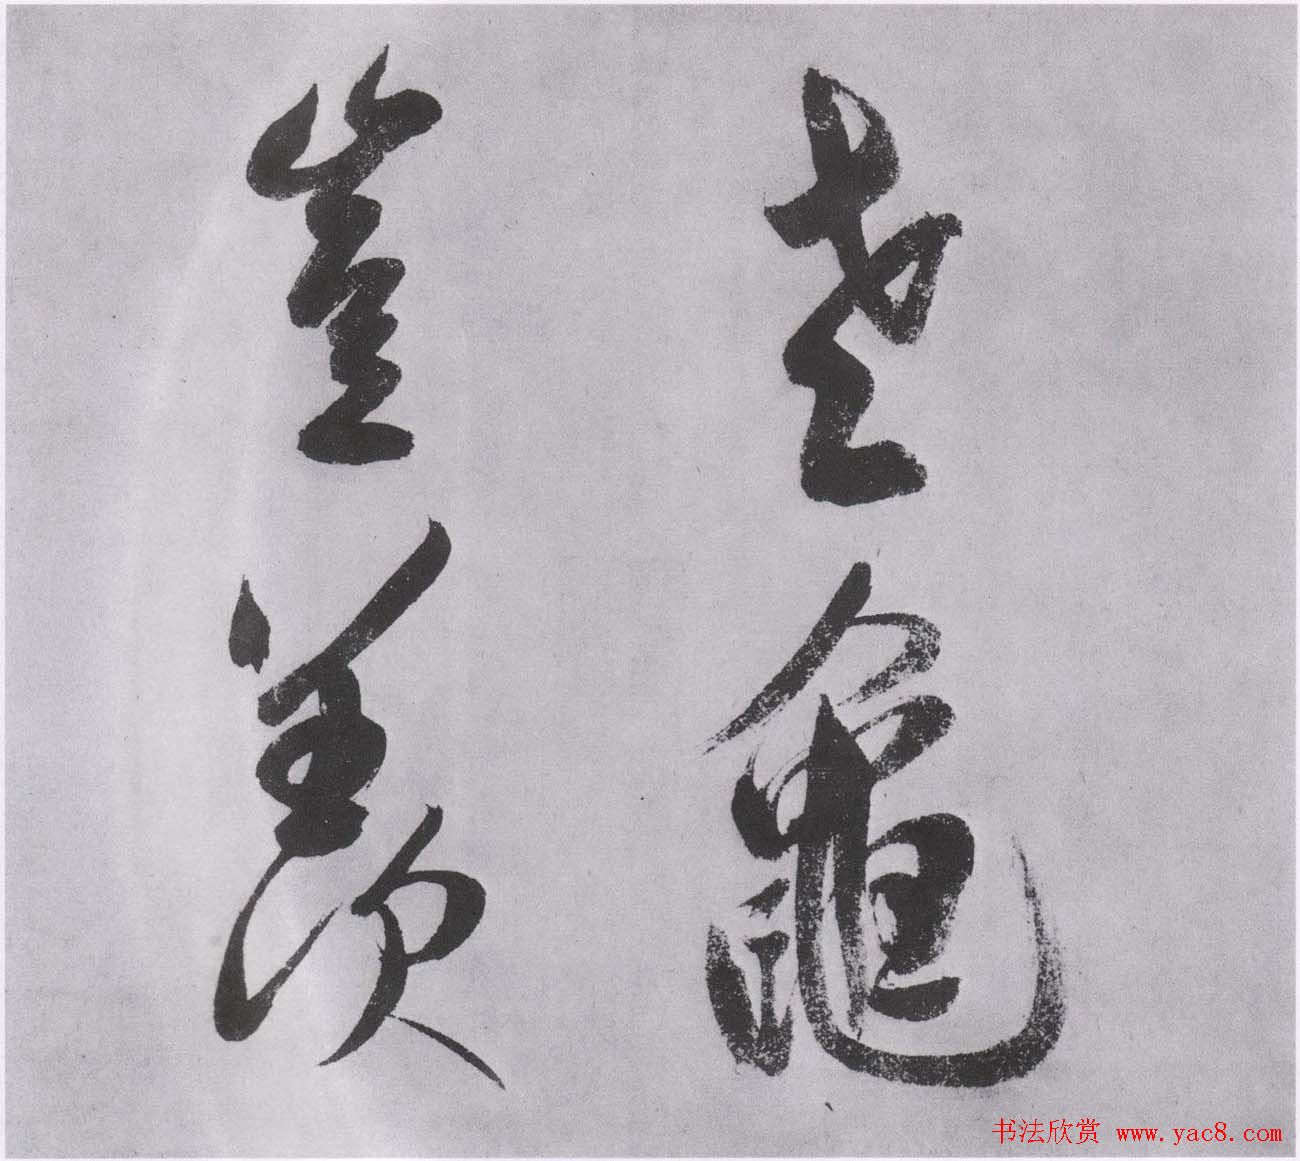 老龜
豈羨
书法欣赏 www.yac8.com